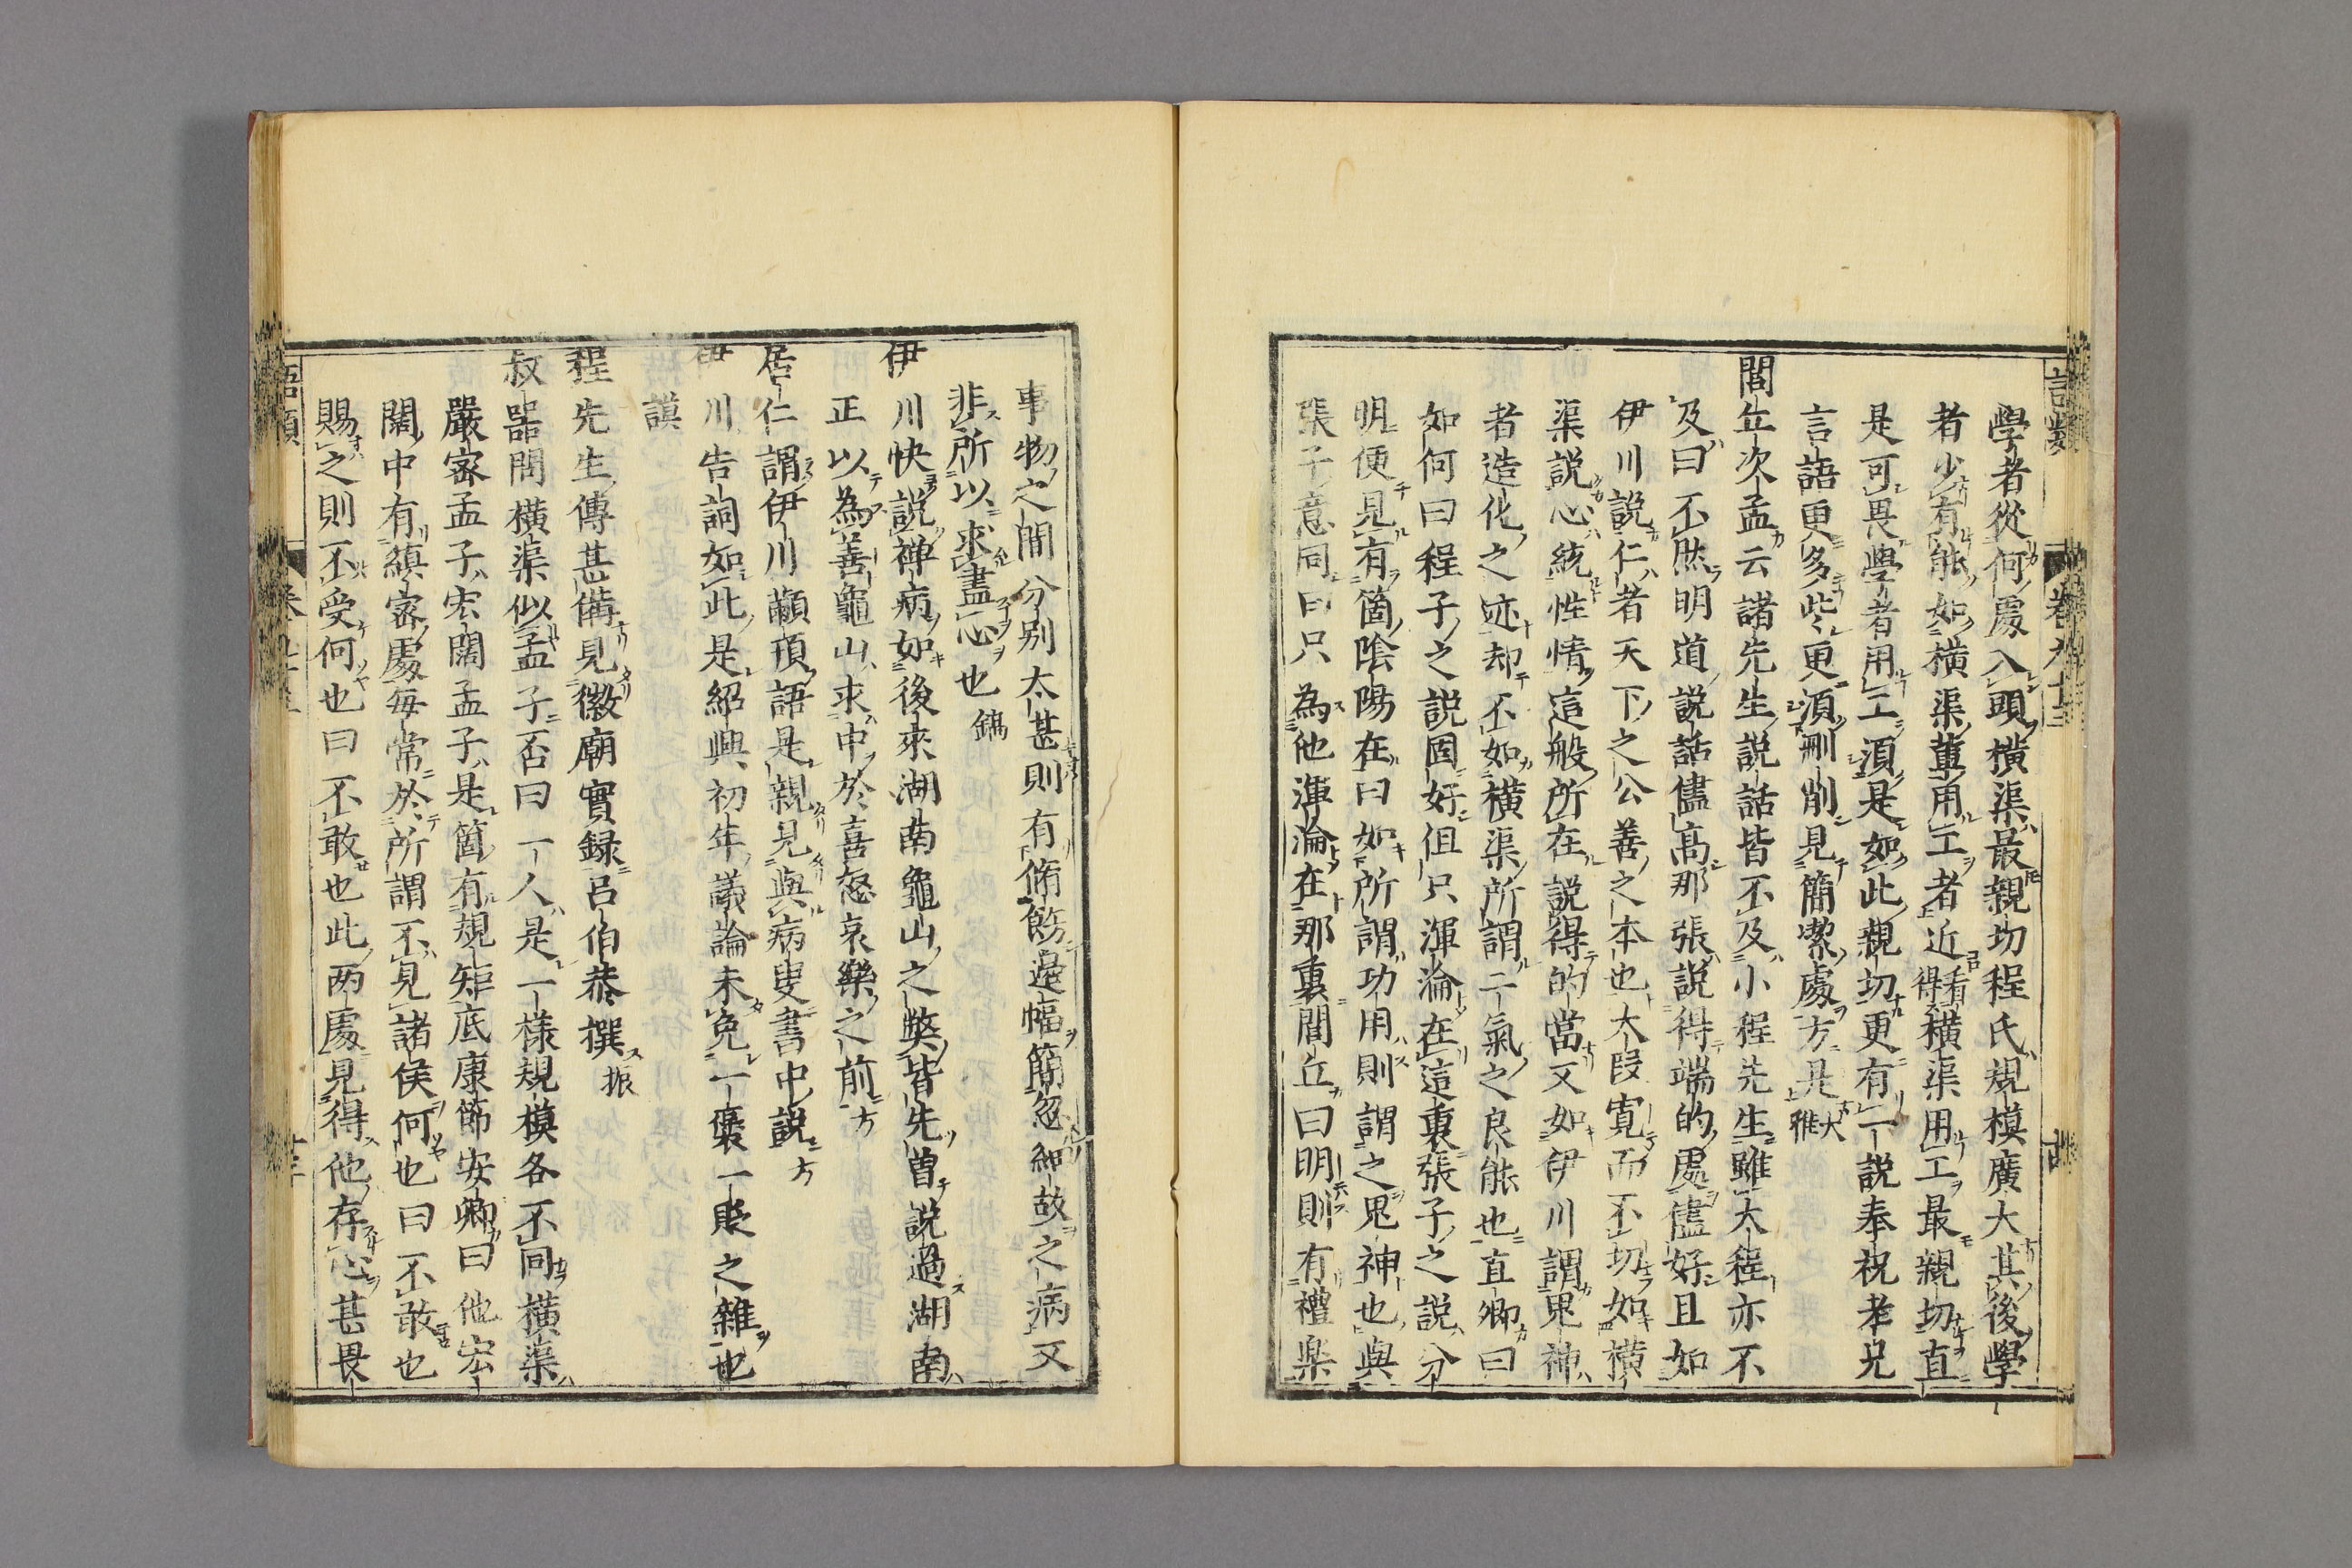 學者從何處入頭橫渠最親切程氏規模廣大其後學
者少有能如橫渠輩用工者近看得橫渠用工最親切直
是可畏學者用工須是如此親切更有一說奉祝老兄
言語更多些更須刪削見簡潔處方是大雅
閭丘次孟云諸先生說話皆不及小程先生雖大程亦不
及曰不然明道說話儘高那張說得端的處儘好且如
伊川說仁者天下之公善之本也大段寬而不切如橫
渠說心統性情這般所在說得的當又如伊川謂鬼神
者造化之迹却不如橫渠所謂二氣之良能也直卿曰
如何曰程子之說固好但只渾淪在這裏張子之說分
明便見有箇陰陽在曰如所謂功用則謂之鬼神也與
張子意同曰只為他渾淪在那裏閭丘曰明則有禮樂
事物之間分別太甚則有脩飾邊幅簡忽細故之病又
非所以求盡心也 鎬
伊川快說禅病如後來湖南龜山之獘皆先曾說過湖南
正以為善龜山求中於喜怒哀樂之前 方
居仁謂伊川顢頇語是親見與病叟書中說 方
伊川告詞如此是紹興初年議論未免一褒一貶之雜也
謨
程先生傳甚備見徽廟實録吕伯恭撰 振
叔器問橫渠似孟子否曰一人是一樣規模各不同橫渠
嚴密孟子宏闊孟子是箇有規矩底康節安卿曰他宏
闊中有縝密處每常於所謂不見諸侯何也曰不敢也
賜之則不受何也曰不敢也此兩處見得他存心甚畏